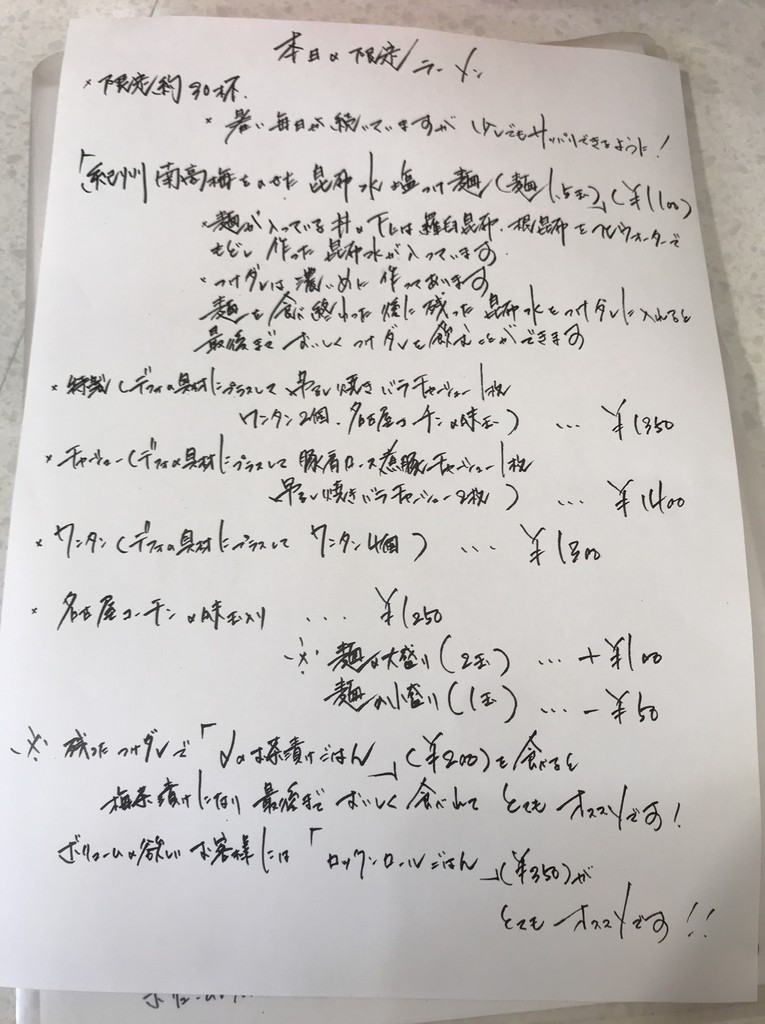 本日の限定ラーメン
* 限定約30杯.
* 暑い毎日が続いていますが 少しでもサッパリできるように!
「紀州南高梅をのせた 昆布水塩つけ麺 (麺1.5玉)」(¥1100)
* 麺が入っている丼の下には羅臼昆布、根昆布をπウォーターで
もどし作った昆布水が入っています
* つけダレは濃いめに作ってあります
麺を食べ終わった後に残った昆布水をつけダレに入れると
最後までおいしくつけダレを飲むことができます
* 特製 (デフォの具材にプラスして 吊るし焼きバラチャーシュー1枚
ワンタン2個、名古屋コーチンの味玉) ... ¥1350
* チャーシュー (デフォの具材にプラスして 豚肩ロース煮豚チャーシュー1枚
吊るし焼きバラチャーシュー2枚) ... ¥1400
* ワンタン (デフォの具材にプラスして ワンタン4個) ... ¥1300
* 名古屋コーチンの味玉入り ... ¥1250
※ 麺の大盛り (2玉) ... +¥100
麺の小盛り (1玉) ... -¥50
※ 残ったつけダレで「〆のお茶漬けごはん」(¥200)を食べると
梅茶漬けになり 最後までおいしく食べれて とてもオススメです!
ボリュームの欲しいお客様には「ロックンロールごはん」(¥350)が
とてもオススメです!!